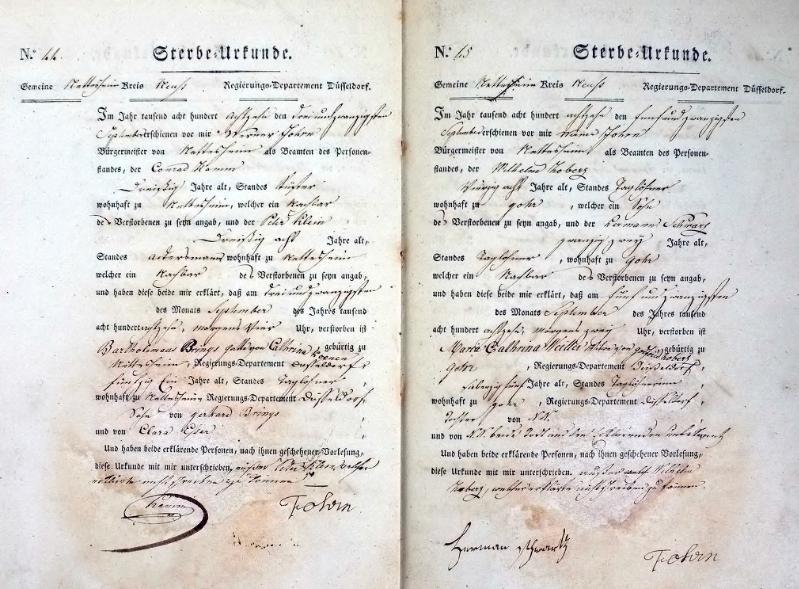 N.º 44 Sterbe-Urkunde.
Gemeine Nettesheim Kreis Neuß Regierungs-Departement Düsseldorf.
Im Jahr tausend acht hundert achtzehn den dreiundzwanzigsten
September erschienen vor mir Werner Fohrn
Bürgermeister von Nettesheim als Beamten des Personen-
standes, der Conrad Hamm
Dreißig Jahre alt, Standes Küster
wohnhaft zu Nettesheim, welcher ein Nachbar
des Verstorbenen zu seyn angab, und der Peter Klein
Dreißig acht Jahre alt,
Standes Ackersmann wohnhaft zu Nettesheim
welcher ein Nachbar des Verstorbenen zu seyn angab,
und haben diese beide mir erklärt, daß am dreiundzwanzigsten
des Monats September des Jahres tausend
acht hundert achtzehn, morgens vier Uhr, verstorben ist
Bartholomaus Brings gatte von Cathrina gebürtig zu
Nettesheim, Regierungs-Departement Düsseldorf
fünfzig Ein Jahre alt, Standes Taglöhner
wohnhaft zu Nettesheim Regierungs-Departement Düsseldorf
Sohn von Gerhard Brings
und von Clara Esser
Und haben beide erklärende Personen, nach ihnen geschehener Vorlesung,
diese Urkunde mit mir unterschrieben, außer Peter Klein welcher
erklärte nicht schreiben zu können
Hamm Fohrn
N.º 45 Sterbe-Urkunde.
Gemeine Nettesheim Kreis Neuß Regierungs-Departement Düsseldorf.
Im Jahr tausend acht hundert achtzehn den fünfundzwanzigsten
September erschienen vor mir Fohrn
Bürgermeister von Nettesheim als Beamten des Personen-
standes, der Wilhelm Koberg
Vierzig acht Jahre alt, Standes Taglöhner
wohnhaft zu Gohr, welcher ein Sohn
der Verstorbenen zu seyn angab, und der Hermann Schwarz
zwanzig zwey Jahre alt,
Standes Taglöhner, wohnhaft zu Gohr
welcher ein Nachbar der Verstorbenen zu seyn angab,
und haben diese beide mir erklärt, daß am fünfundzwanzigsten
des Monats September des Jahres tausend
acht hundert achtzehn, morgens zwey Uhr, verstorben ist
Maria Cathrina Weiller Witwe von gebürtig zu
Gohr, Regierungs-Departement Düsseldorf,
siebenzig fünf Jahre alt, Standes Taglöhnerinn
wohnhaft zu Gohr, Regierungs-Departement Düsseldorf
Tochter von N.N.
und von N.N. beide todt und den Erklärenden unbekannt
Und haben beide erklärende Personen, nach ihnen geschehener Vorlesung,
diese Urkunde mit mir unterschrieben. außer Wilhelm
Koberg, welcher erklärte nicht schreiben zu können
Herman Schwartz Fohrn